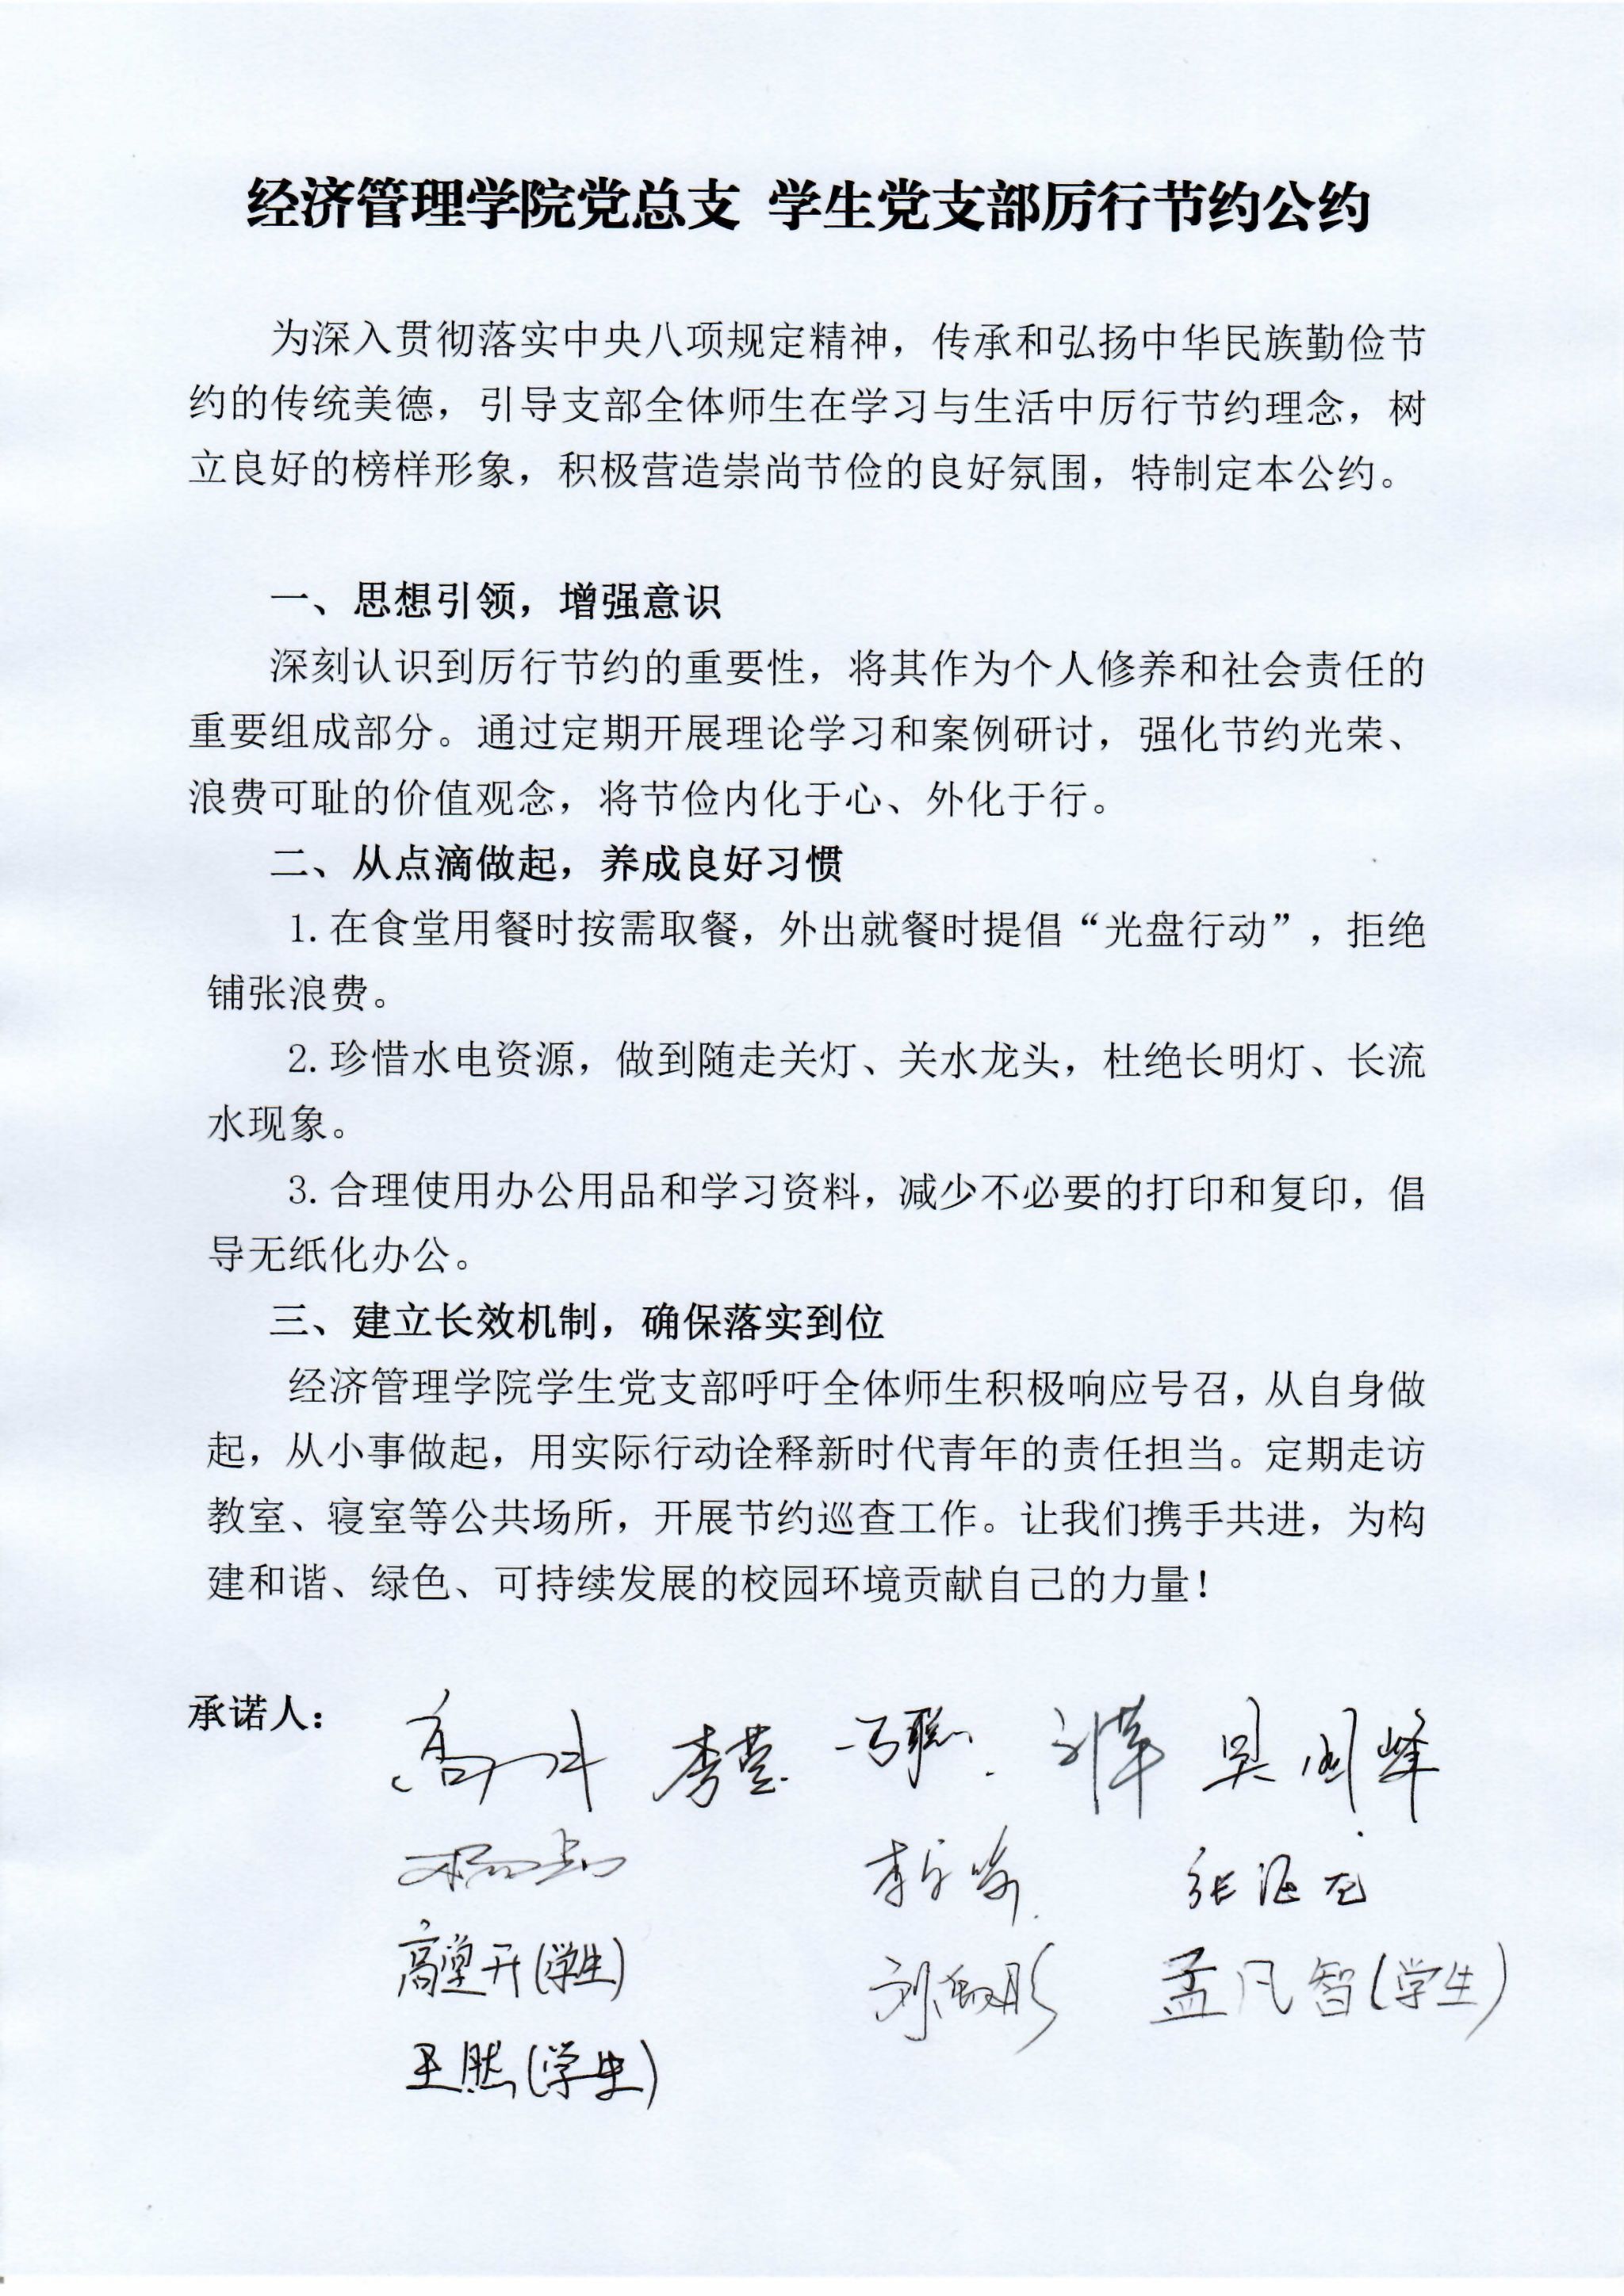 经济管理学院党总支 学生党支部厉行节约公约
为深入贯彻落实中央八项规定精神，传承和弘扬中华民族勤俭节
约的传统美德，引导支部全体师生在学习与生活中厉行节约理念，树
立良好的榜样形象，积极营造崇尚节俭的良好氛围，特制定本公约。
一、思想引领，增强意识
深刻认识到厉行节约的重要性，将其作为个人修养和社会责任的
重要组成部分。通过定期开展理论学习和案例研讨，强化节约光荣、
浪费可耻的价值观念，将节俭内化于心、外化于行。
二、从点滴做起，养成良好习惯
1.在食堂用餐时按需取餐，外出就餐时提倡“光盘行动”，拒绝
铺张浪费。
2.珍惜水电资源，做到随走关灯、关水龙头，杜绝长明灯、长流
水现象。
3.合理使用办公用品和学习资料，减少不必要的打印和复印，倡
导无纸化办公。
三、建立长效机制，确保落实到位
经济管理学院学生党支部呼吁全体师生积极响应号召，从自身做
起，从小事做起，用实际行动诠释新时代青年的责任担当。定期走访
教室、寝室等公共场所，开展节约巡查工作。让我们携手共进，为构
建和谐、绿色、可持续发展的校园环境贡献自己的力量！
承诺人： 李莹 冯聪 吴国峰
张海龙
(学生) 孟凡智(学生)
王然(学生)